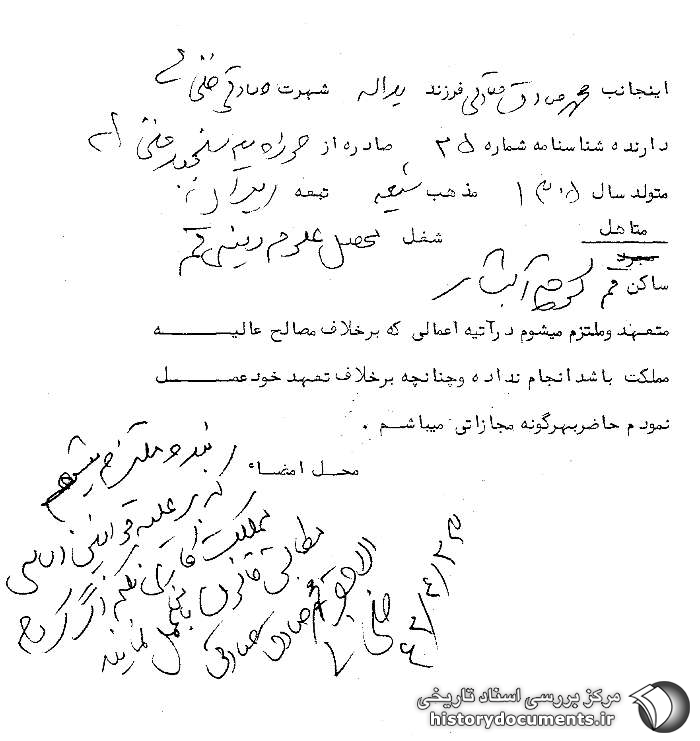 اینجانب محمد صادق صادقی فرزند یداله شهرت صادقی
دارنده شناسنامه شماره ۲۵ صادره از
متولد سال ۱۳۰۵ مذهب شیعه تبعه ایران
متاهل
مجرد
شغل محصل علوم دینی قم
ساکن قم کوچه آبشار
متعهد وملتزم میشوم درآتیه اعمالی که برخلاف مصالح عالیه
مملکت باشد انجام نداده وچنانچه برخلاف تعهد خود عمل
نمودم حاضر بهرگونه مجازاتی میباشم .
محل امضاء
بنده ملتزم میشوم
که بر علیه قوانین اساسی
مملکت اقدامی نکنم اگر کردم
مطابق قانون با من عمل نمایند
الاحقر محمد صادق صادقی
۴۳/۴/۲۳
مرکز بررسی اسناد تاریخی
historydocuments.ir